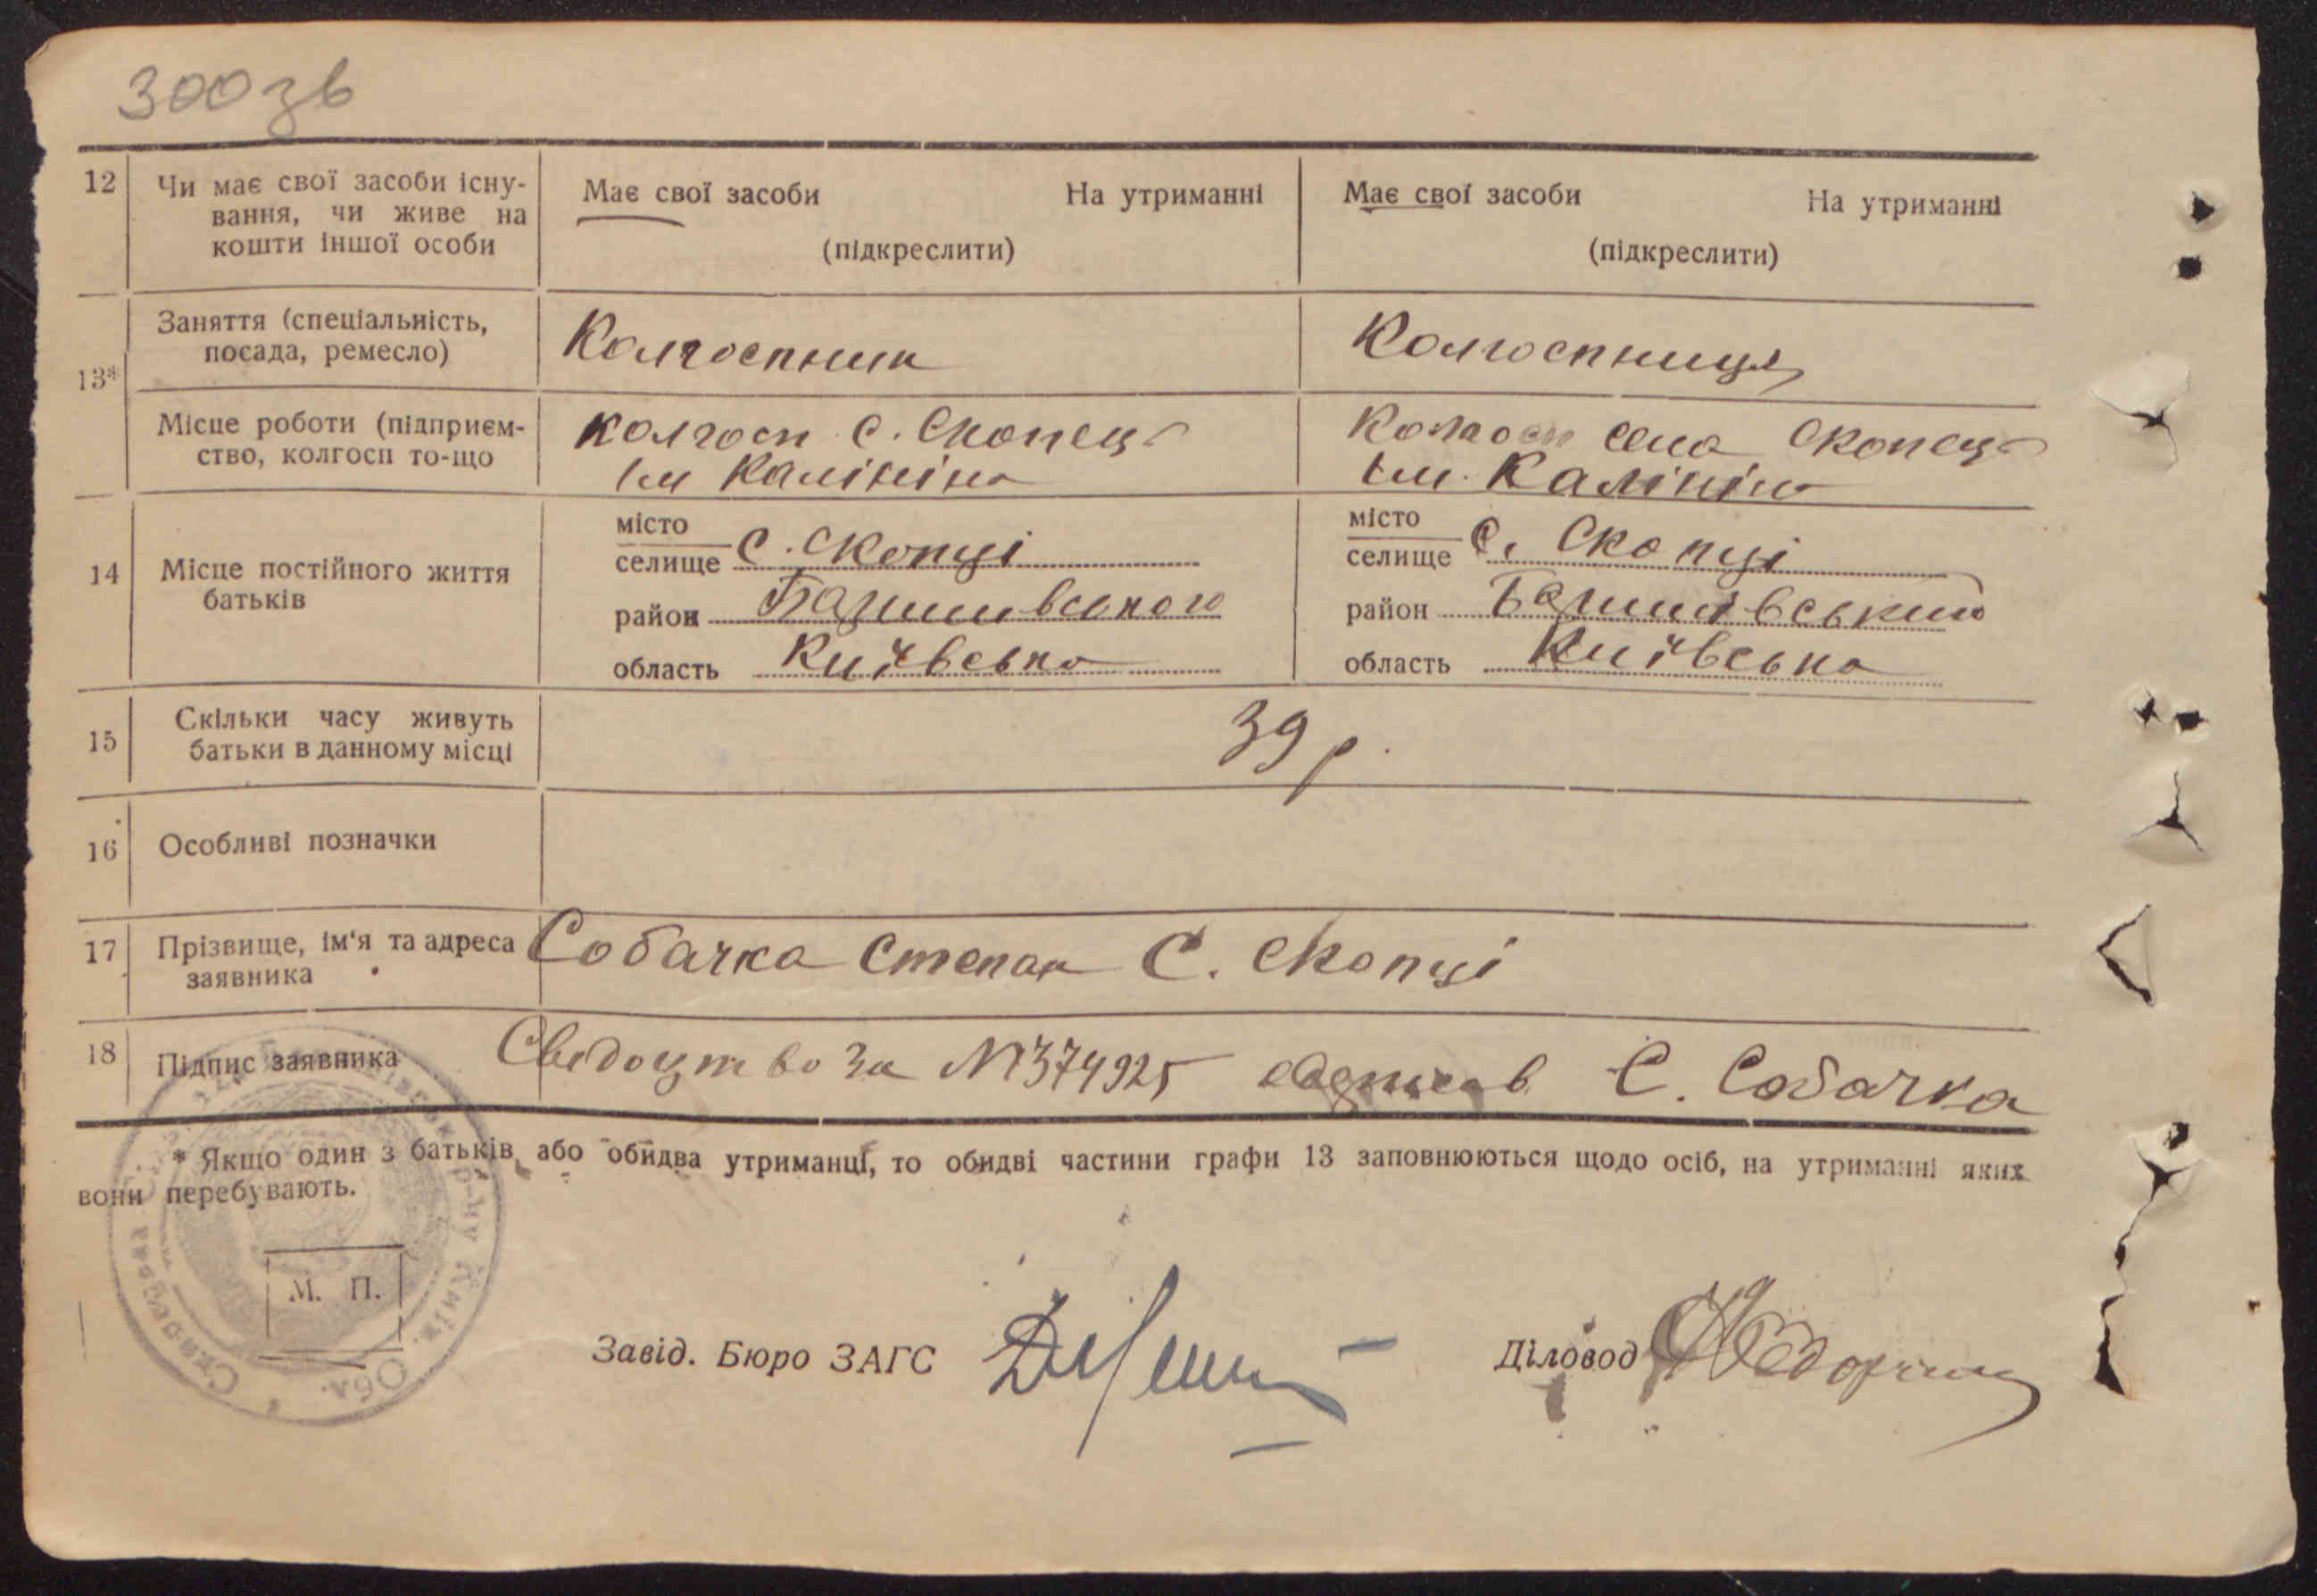 300зв
12 Чи має свої засоби існу- Має свої засоби На утриманні Має свої засоби На утриманні
вання, чи живе на
кошти іншої особи (підкреслити) (підкреслити)
13* Заняття (спеціальність, Колгоспник Колгоспниця
посада, ремесло)
Місце роботи (підприєм- колгосп с. Скопець Колгосп села Скопець
ство, колгосп то-що ім Калініна ім. Калініна
14 Місце постійного життя батьків
місто
селище с. Скопці
район Баришивського
область Київська
місто
селище с. Скопці
район Баришивський
область Київська
15 Скільки часу живуть 39 р.
батьки в данному місці
16 Особливі позначки
17 Прізвище, ім'я та адреса Собачка Степан С. Скопці
заявника
18 Підпис заявника Свидоцтво за №374925 С. Собачка
* Якщо один з батьків або обидва утриманці, то обидві частини графи 13 заповнюються щодо осіб, на утриманні яких
вони перебувають.
М. П.
Завід. Бюро ЗАГС Діловод